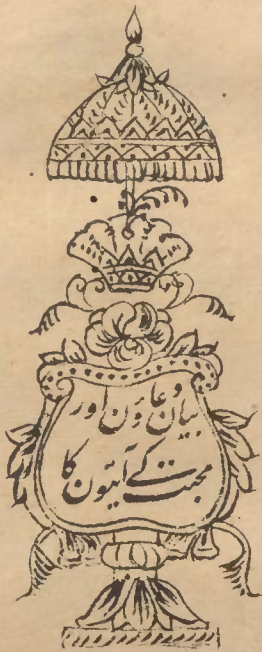 بیان دعاؤن اور
محبت کے آیتون کا